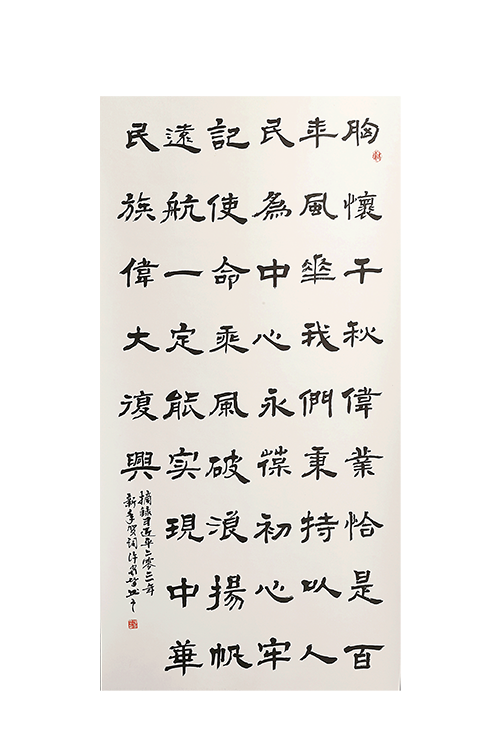 胸懷千秋偉業恰是百
年風華我們秉持以人
民為中心永葆初心牢
記使命乘風破浪揚帆
遠航一定能實現中華
民族偉大復興
摘錄习近平二零二一年
新年贺詞